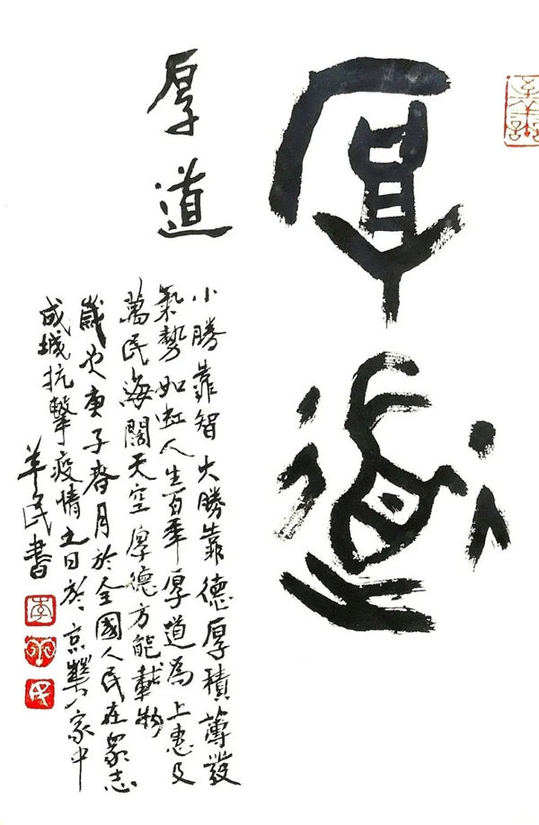 厚道
厚道
小勝靠智大勝靠德厚積薄發
氣勢如虹人生百年厚道為上惠及
萬民海闊天空厚德方能載物
歲次庚子春月於全國人民在眾志
成城抗擊疫情之日於京華家中
羊民書
李